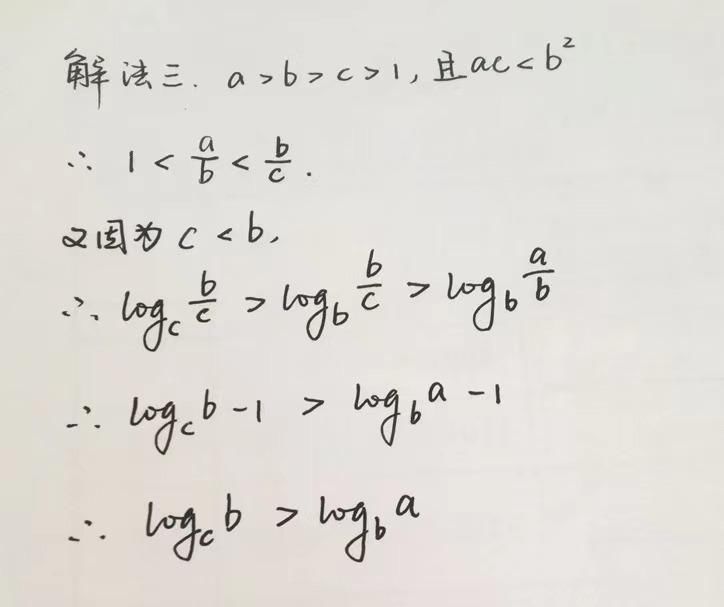 解法三. a > b > c > 1, 且 ac < b²
∴ 1 < a/b < b/c .
又因为 c < b,
∴ log_c b/c > log_b b/c > log_b a/b
∴ log_c b - 1 > log_b a - 1
∴ log_c b > log_b a